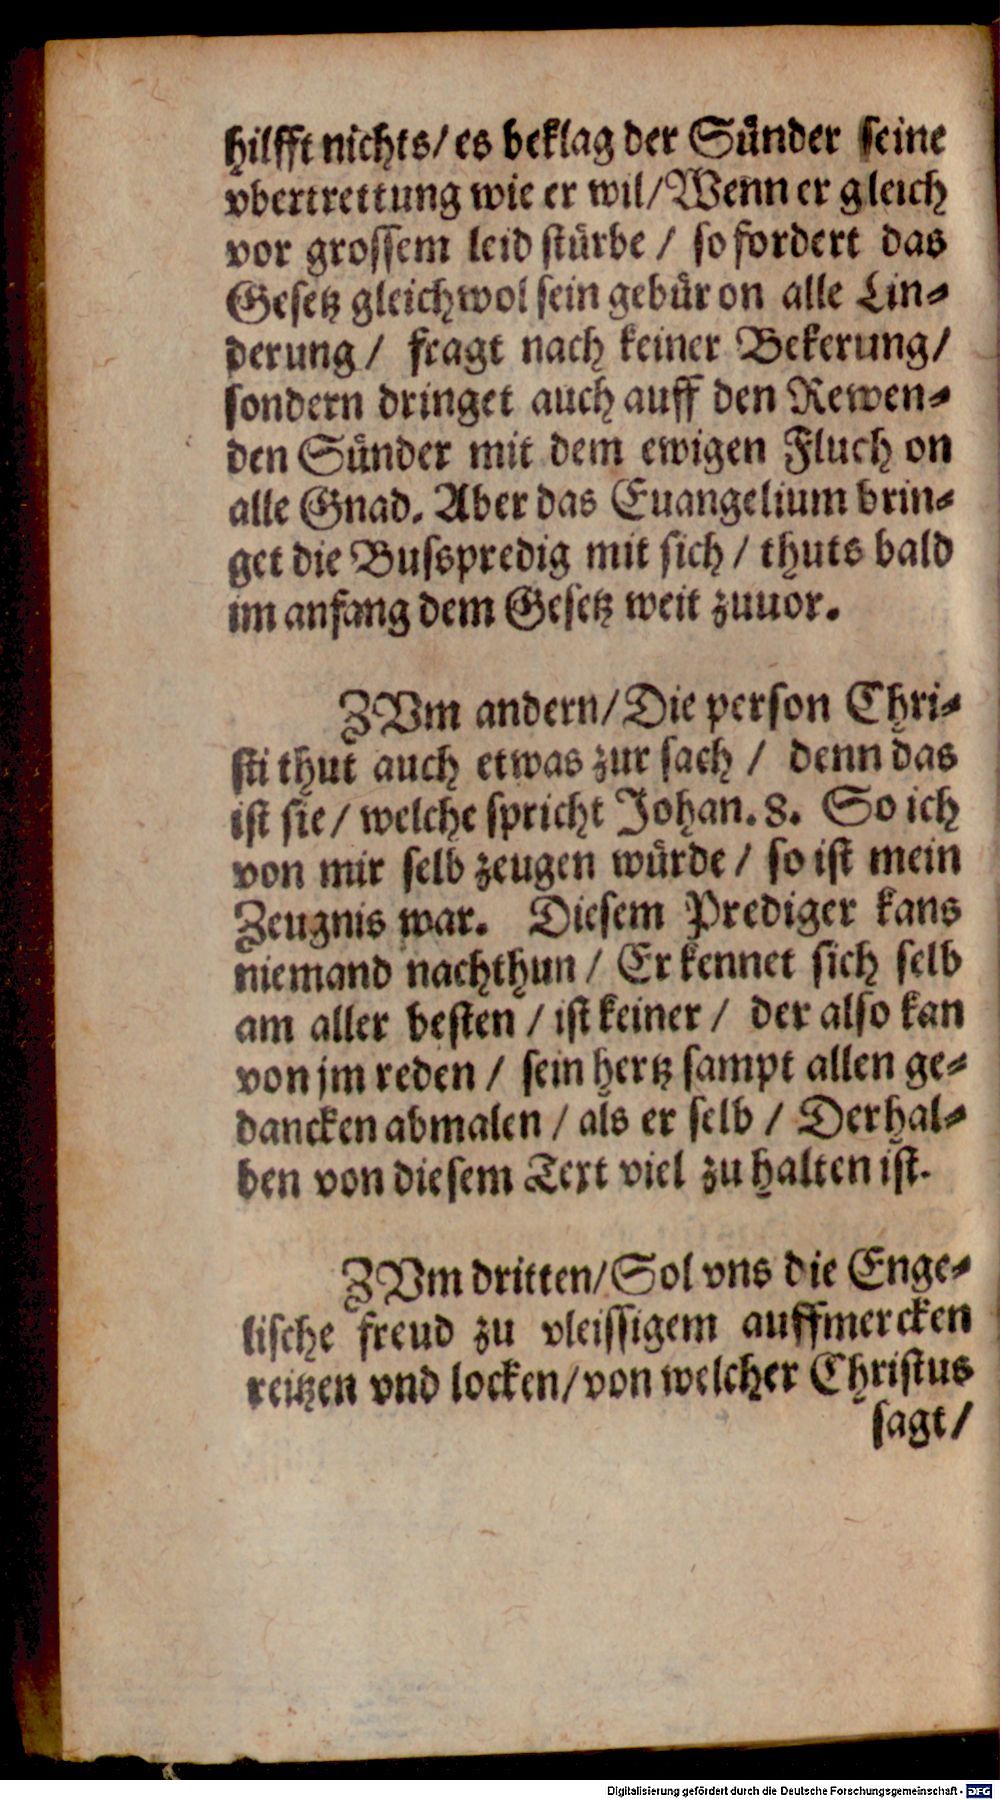 hilfft nichts/ es beklag der Sünder seine
vbertrettung wie er wil/ Wenn er gleich
vor grossem leid stürbe / so fordert das
Gesetz gleichwol sein gebür on alle Lin-
derung / fragt nach keiner Bekerung/
sondern dringet auch auff den Rewen-
den Sünder mit dem ewigen Fluch on
alle Gnad. Aber das Euangelium brin-
get die Busspredig mit sich / thuts bald
im anfang dem Gesetz weit zuuor.
ZVm andern/ Die person Chri-
sti thut auch etwas zur sach / denn das
ist sie / welche spricht Johan. 8. So ich
von mir selb zeugen würde / so ist mein
Zeugnis war. Diesem Prediger kans
niemand nachthun / Er kennet sich selb
am aller besten / ist keiner / der also kan
von jm reden / sein hertz sampt allen ge-
dancken abmalen / als er selb / Derhal-
ben von diesem Text viel zu halten ist.
ZVm dritten/ Sol vns die Enge-
lische freud zu vleissigem auffmercken
reitzen vnd locken/ von welcher Christus
sagt/
Digitalisierung gefördert durch die Deutsche Forschungsgemeinschaft - DFG